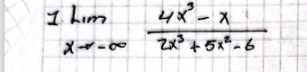 I Lim 4x³ - x
x→-∞ 2x³ + 5x² - 6